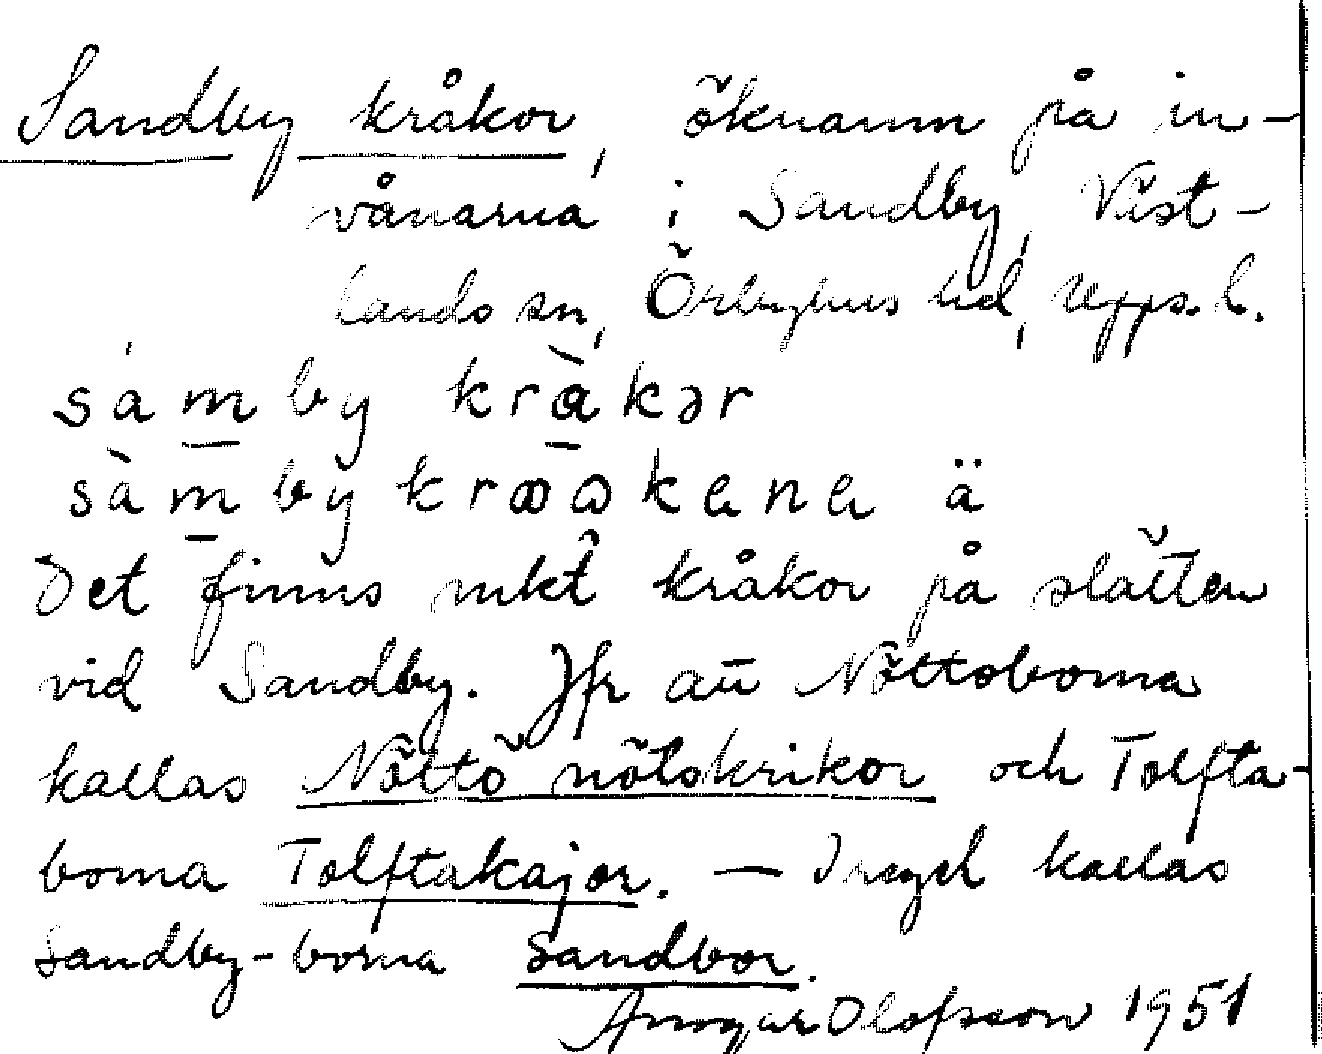 Sandby kråkor, öknamn på in-
vånarna i Sandby, Väst-
lands sn, Örbyhus hd, Upps. l.
sámby kràkər
sàmby kraakana ä
Det finns mkt kråkor på slätten
vid Sandby. Jfr att Nöttöborna
kallas Nöttö nötskrikor och Tolfta-
borna Tolftakajor. — I regel kallas
Sandby-borna Sandbor.
Ansgar Olofsson 1951